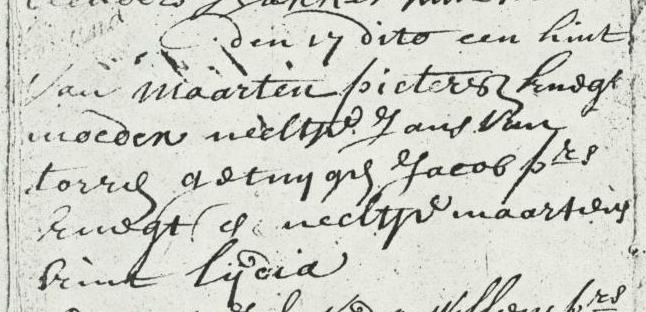 den 17 dito een kint
van maarten pietersz knegt
moeder neeltje Jans van
torren getuygen Jacob prs
knegt en neeltje maartens
kint lijdia